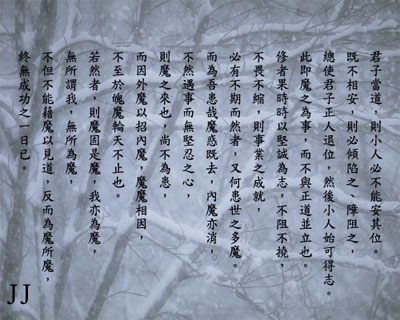 君子當道，則小人必不能安其位。
既不相安，則必傾陷之、障阻之，
總使君子正人退位，然後小人始可得志。
此即魔之為事，而不與正道並立也。
修者果時時以堅誠為志，不阻不撓，
不畏不縮，則事業之成就，
必有不期而然者，又何患世之多魔。
而為吾患哉魔惑既去，內魔亦消，
不然遇事而無堅忍之心，
則魔之來也，尚不為患，
而因外魔以招內魔，魔魔相因，
不至於魄魔輪天不止也。
若然者，則魔固是魔，我亦為魔，
無所謂我，無所為魔，
不但不能藉魔以見道，反而為魔所魔，
終無成功之一日已。
JJ